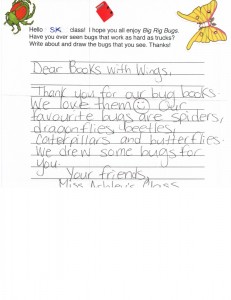 Hello SK class! I hope you all enjoy Big Rig Bugs.
Have you ever seen bugs that work as hard as trucks?
Write about and draw the bugs that you see. Thanks!
Dear Books with Wings,
Thank you for our bug books.
We love them☺ Our
favourite bugs are spiders,
dragonflies, beetles,
caterpillars and butterflies.
We drew some bugs for
you.
Your friends,
Miss Class